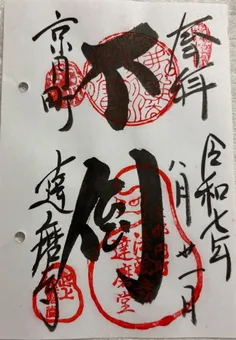 奉拝
令和七年
八月廿一日
不倒
京円町
達磨寺
達磨堂